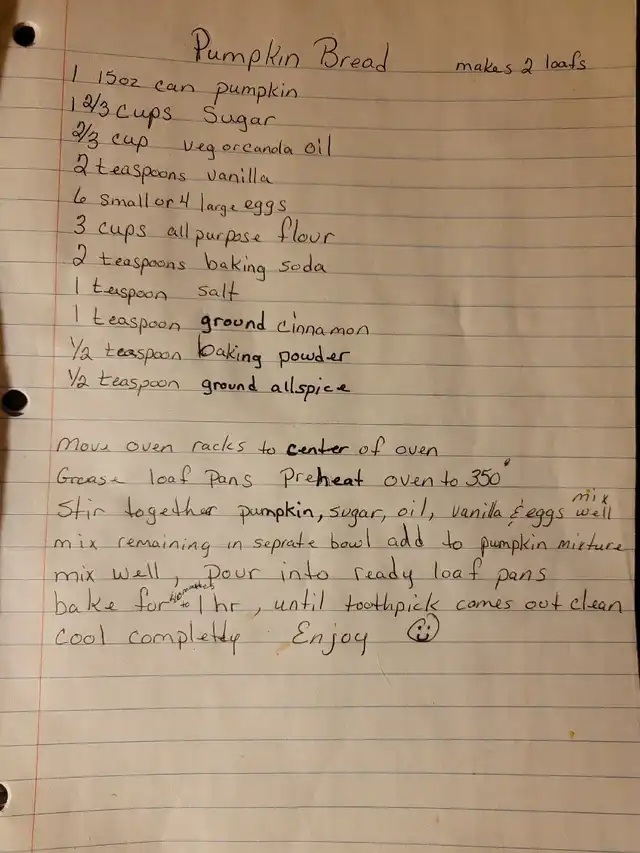 Pumpkin Bread makes 2 loafs
1 15oz can pumpkin
1 2/3 cups Sugar
2/3 cup veg or canola oil
2 teaspoons vanilla
6 small or 4 large eggs
3 cups all purpose flour
2 teaspoons baking soda
1 teaspoon salt
1 teaspoon ground cinnamon
1/2 teaspoon baking powder
1/2 teaspoon ground allspice
Move oven racks to center of oven
Grease loaf pans Preheat oven to 350°
Stir together pumpkin, sugar, oil, vanilla & eggs mix well
mix remaining in seprate bowl add to pumpkin mixture
mix well, Pour into ready loaf pans
bake for to 1 hr, until toothpick comes out clean
Cool completly Enjoy